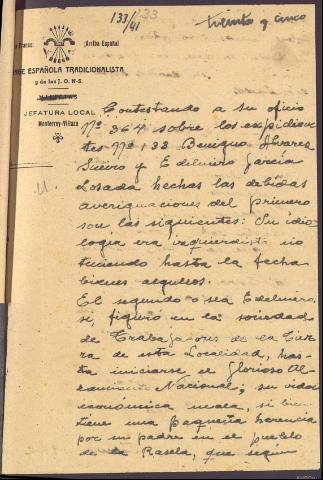 133/41
133
treinta y cinco
Franco
¡Arriba España!
NGE ESPAÑOLA TRADICIONALISTA
y de las J. O. N-S.
JEFATURA LOCAL
Monterrey-Villaza
Contestando a su oficio
Nº 964 sobre los expidien
tes Nº 133 Benigno Alvares
Sueiro y Edelmiro Garcia
Losada hechas las debidas
averiguaciones del primero
son las siguientes: Su idio
logia era izquierdista no
teniendo hasta la fecha
bienes algunos.
El segundo o sea Edelmiro,
si, figuró en la sociedad
de Trabajadores de la Tier
ra de esta Localidad, has-
ta iniciarse el Glorioso Al-
zamiento Nacional; su vida
económica mala, si bien
tiene una pequeña herencia
por su padre en el pueblo
de la Rasela, que segun